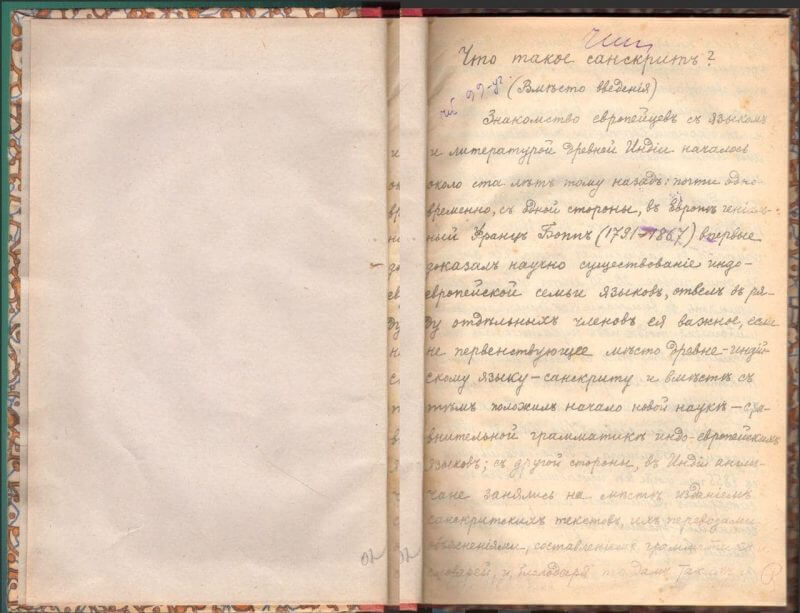 Что такое санскритъ?
(Вмѣсто введенія)
Знакомство европейцевъ съ языкомъ
и литературой древней Индіи началось
около ста лѣтъ тому назадъ: почти одно-
временно, съ одной стороны, въ Европѣ геніаль-
ный Францъ Боппъ (1791-1867) впервые
доказалъ научно существованіе индо-
европейской семьи языковъ, отвелъ въ ря-
ду отдѣльныхъ членовъ ея важное, если
не первенствующее мѣсто древне-индій-
скому языку – санскриту и вмѣстѣ съ
тѣмъ положилъ начало новой наукѣ – сра-
внительной грамматикѣ индо-европейскихъ
языковъ; съ другой стороны, въ Индіи англи-
чане занялись на мѣстѣ изданіемъ
санскритскихъ текстовъ, ихъ переводами
объясненіями, составленіемъ грамматикъ и
словарей, и, благодаря